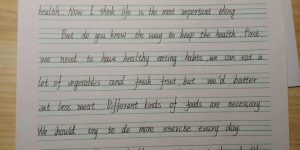 health. Now I think life is the most important thing
But do you know the way to keep the health first
we need to have healthy eating habits we can eat a
lot of vegetables and fresh fruit but we'd batter
eat less meat Different kinds of foods are necessary
We should try to do more exercise every day